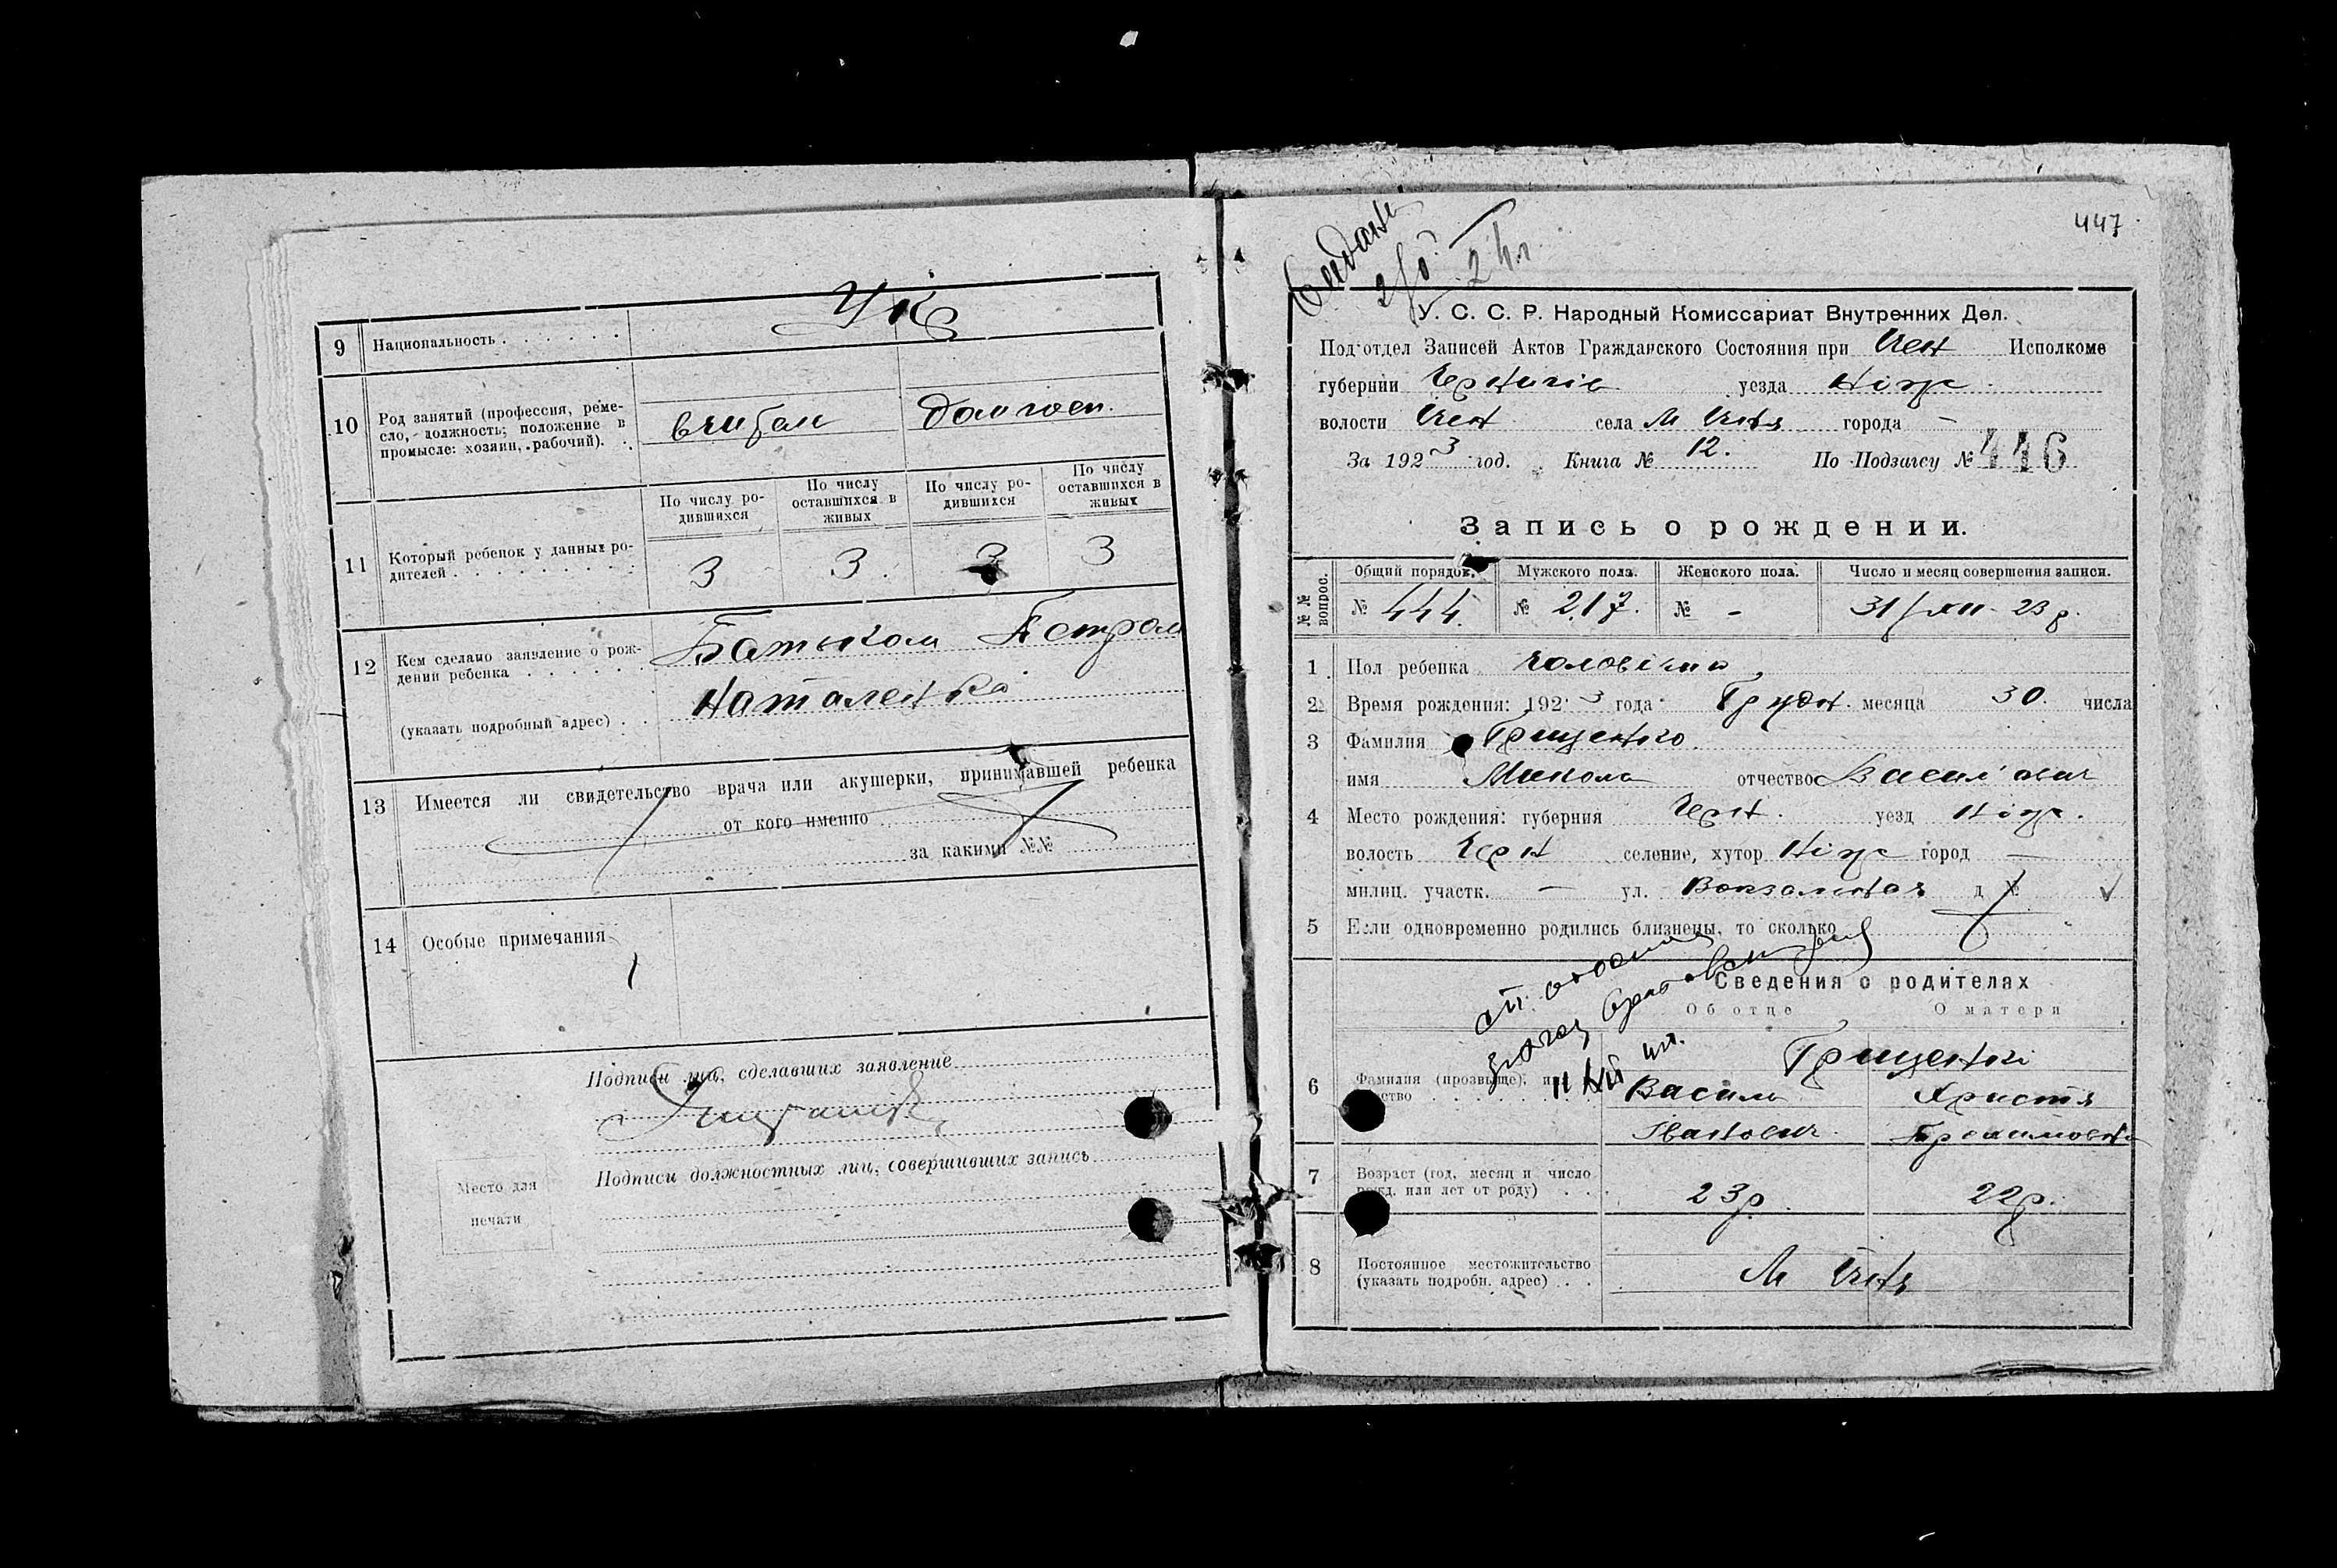 9 Национальность . . . . . . Ук
10 Род занятий (профессия, реме-
сло, должность; положение в
промысле: хозяин, рабочий). .
домгосп.
По числу ро-
дившихся
По числу
оставшихся в
живых
По числу ро-
дившихся
По числу
оставшихся в
живых
11 Который ребенок у данных ро-
дителей . . . . . . . . .
3 3. 3 3
12 Кем сделано заявление о рож-
дении ребенка . . . . . . Батьком Петром
(указать подробный адрес) . . Наталенко
13 Имеется ли свидетельство врача или акушерки, принимавшей ребенка
от кого именно
за какими №№
14 Особые примечания
Подписи лиц, сделавших заявление
Подписи должностных лиц, совершивших запись
Место для
печати
447
У. С. С. Р. Народный Комиссариат Внутренних Дел.
Подотдел Записей Актов Гражданского Состояния при Ичен Исполкоме
губернии Чернигів уезда Ніж.
волости Ичен села М Ичня города -
За 1923 год. Книга № 12. По Подзагсу № 446
Запись о рождении.
№№ вопрос.
Общий порядок. Мужского пола. Женского пола. Число и месяц совершения записи.
№ 444. № 217. № - 31/XII-23 р.
1 Пол ребенка чоловіча
2 Время рождения: 1923 года Грудн. месяца 30. числа
3 Фамилия Грищенко
имя Микола отчество Васильович
4 Место рождения: губерния Черн. уезд Ніж.
волость Черн селение, хутор Ніж город —
милиц. участк. — ул. Вокзальная д №
5 Если одновременно родились близнецы, то сколько
Сведения о родителях
Об отце О матери
Грищенки
6 Фамилия (прозвище), и
ство . . . . . Василь Христя
Іванович.
7 Возраст (год, месяц и число
рожд. или лет от роду) . . . 23р. 22р.
8 Постоянное местожительство
(указать подробн. адрес) . . . М Ичня